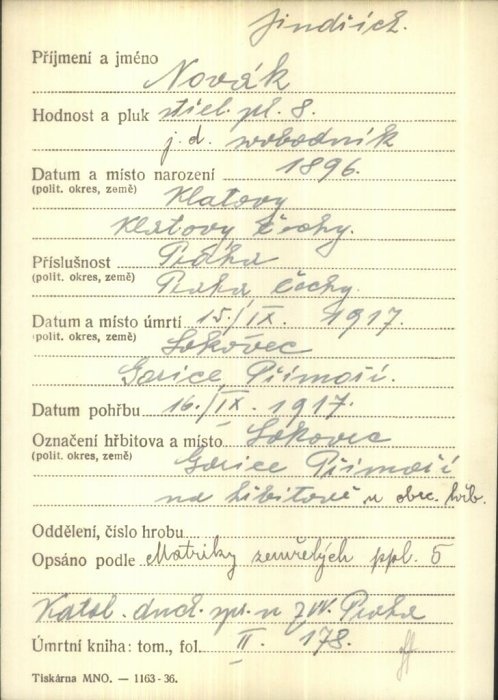 Jindřich.
Příjmení a jméno
Novák
Hodnost a pluk střel. pl. 8.
j. d. svobodník
Datum a místo narození 1896.
(polit. okres, země) Klatovy
Klatovy Čechy.
Příslušnost Praha
(polit. okres, země) Praha Čechy.
Datum a místo úmrtí 15./IX. 1917.
(polit. okres, země) Lokovec
Gorice, Přímoří.
Datum pohřbu 16./IX. 1917.
Označení hřbitova a místo Lokovec
(polit. okres, země) Gorice Přímoří
na hřbitově u obec. hřb.
Oddělení, číslo hrobu
Opsáno podle Matriky zemřelých ppl. 5
Katol. duch. spr. u ZVV. Praha
Úmrtní kniha: tom., fol. II. 178.
Tiskárna MNO. — 1163-36.